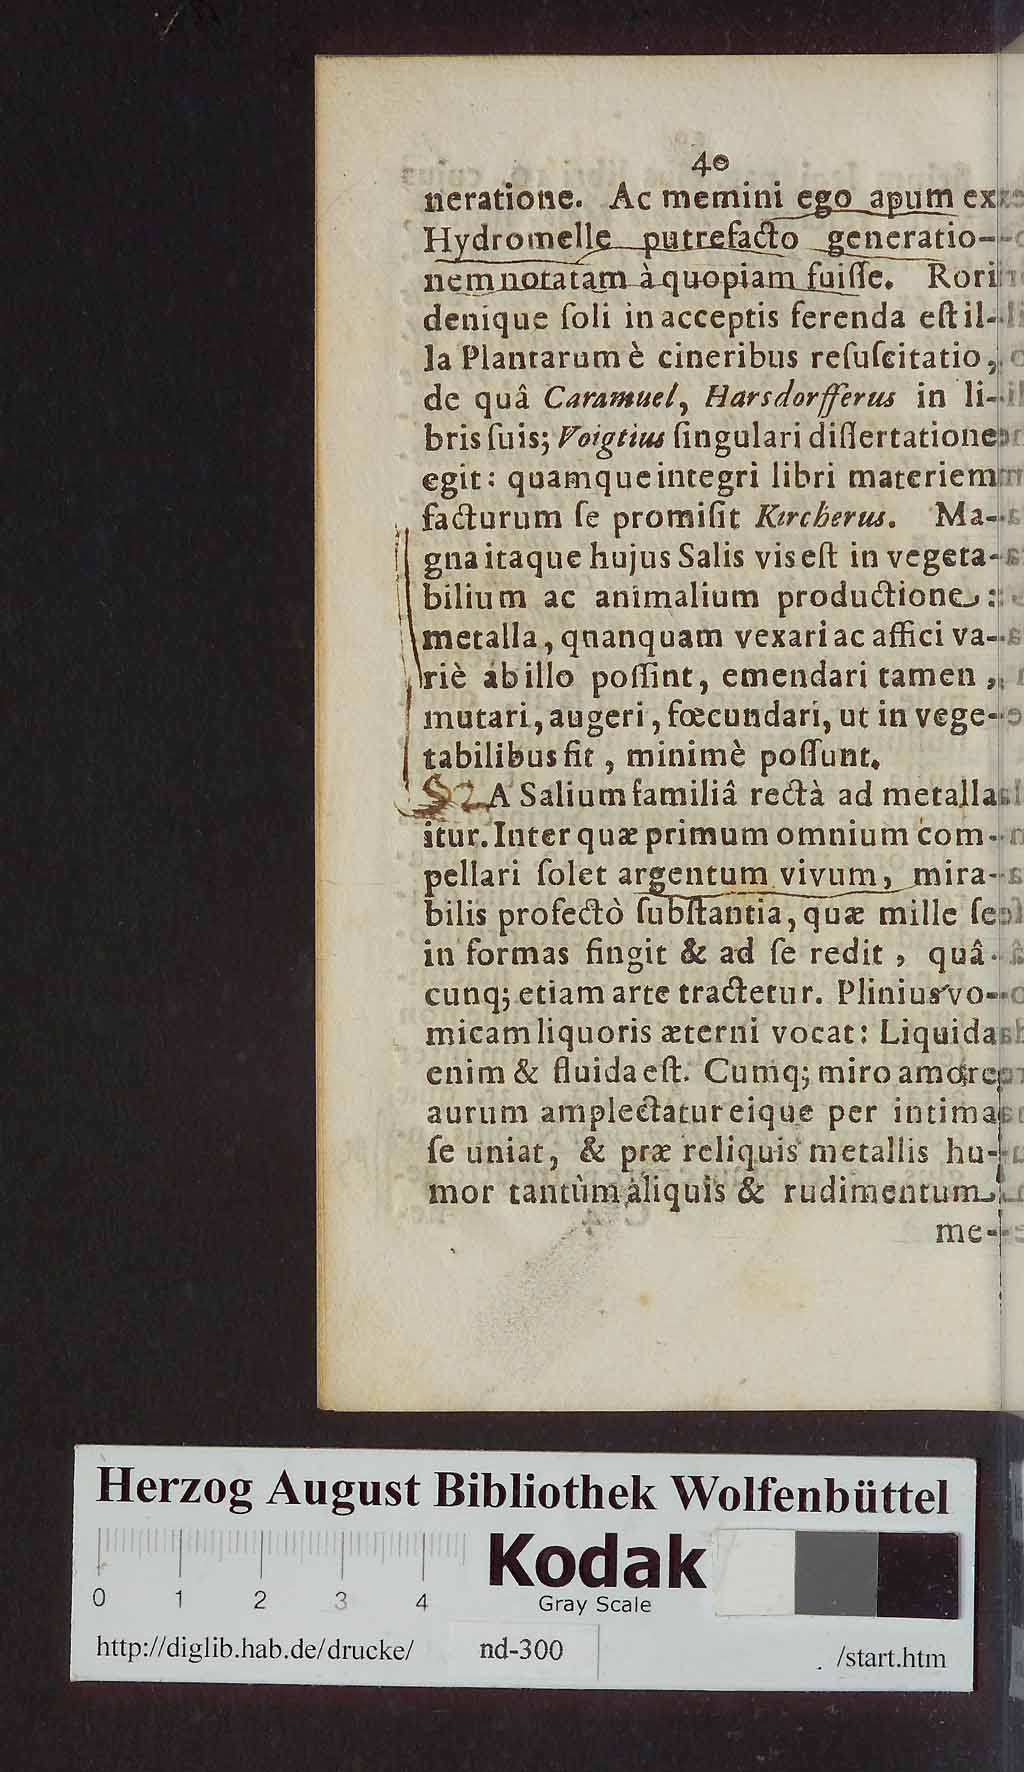 40
neratione. Ac memini ego apum ex
Hydromelle putrefacto generatio-
nem notatam à quopiam fuiſſe. Rori
denique ſoli in acceptis ferenda eſt il-
la Plantarum è cineribus reſuſcitatio,
de quâ Caramuel, Harsdorfferus in li-
bris ſuis; Voigtius ſingulari diſſertatione
egit: quamque integri libri materiem
facturum ſe promiſit Kircherus. Ma-
gna itaque hujus Salis vis eſt in vegeta-
bilium ac animalium productione:
metalla, qnanquam vexari ac affici va-
riè ab illo poſſint, emendari tamen,
mutari, augeri, fœcundari, ut in vege-
tabilibus fit, minimè poſſunt.
§2 A Salium familiâ rectà ad metalla
itur. Inter quæ primum omnium com-
pellari ſolet argentum vivum, mira-
bilis profectò ſubſtantia, quæ mille ſe
in formas fingit & ad ſe redit, quâ-
cunq; etiam arte tractetur. Plinius vo-
micam liquoris æterni vocat: Liquida
enim & fluida eſt. Cumq; miro amore
aurum amplectatur eique per intima
ſe uniat, & præ reliquis metallis hu-
mor tantùm aliquis & rudimentum
me-
Herzog August Bibliothek Wolfenbüttel
Kodak
Gray Scale
0 1 2 3 4
http://diglib.hab.de/drucke/ nd-300 /start.htm